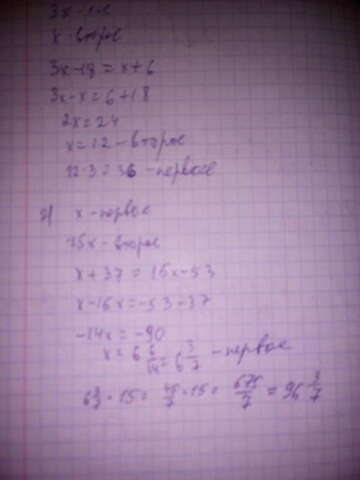 3x-
x-второе
3x-18=x+6
3x-x=6+18
2x=24
x=12-второе
12·3=36-первое
x-первое
15x-второе
x+37=15x-53
x-15x=-53-37
-14x=-90
x=6 6/14=6 3/7 -первое
6 3/7·15=45/7·15=675/7=96 3/7